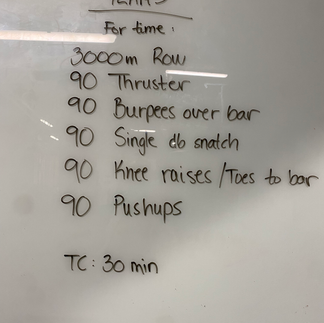 For time:
3000m Row
90 Thruster
90 Burpees over bar
90 Single db snatch
90 Knee raises/Toes to bar
90 Pushups
TC: 30 min